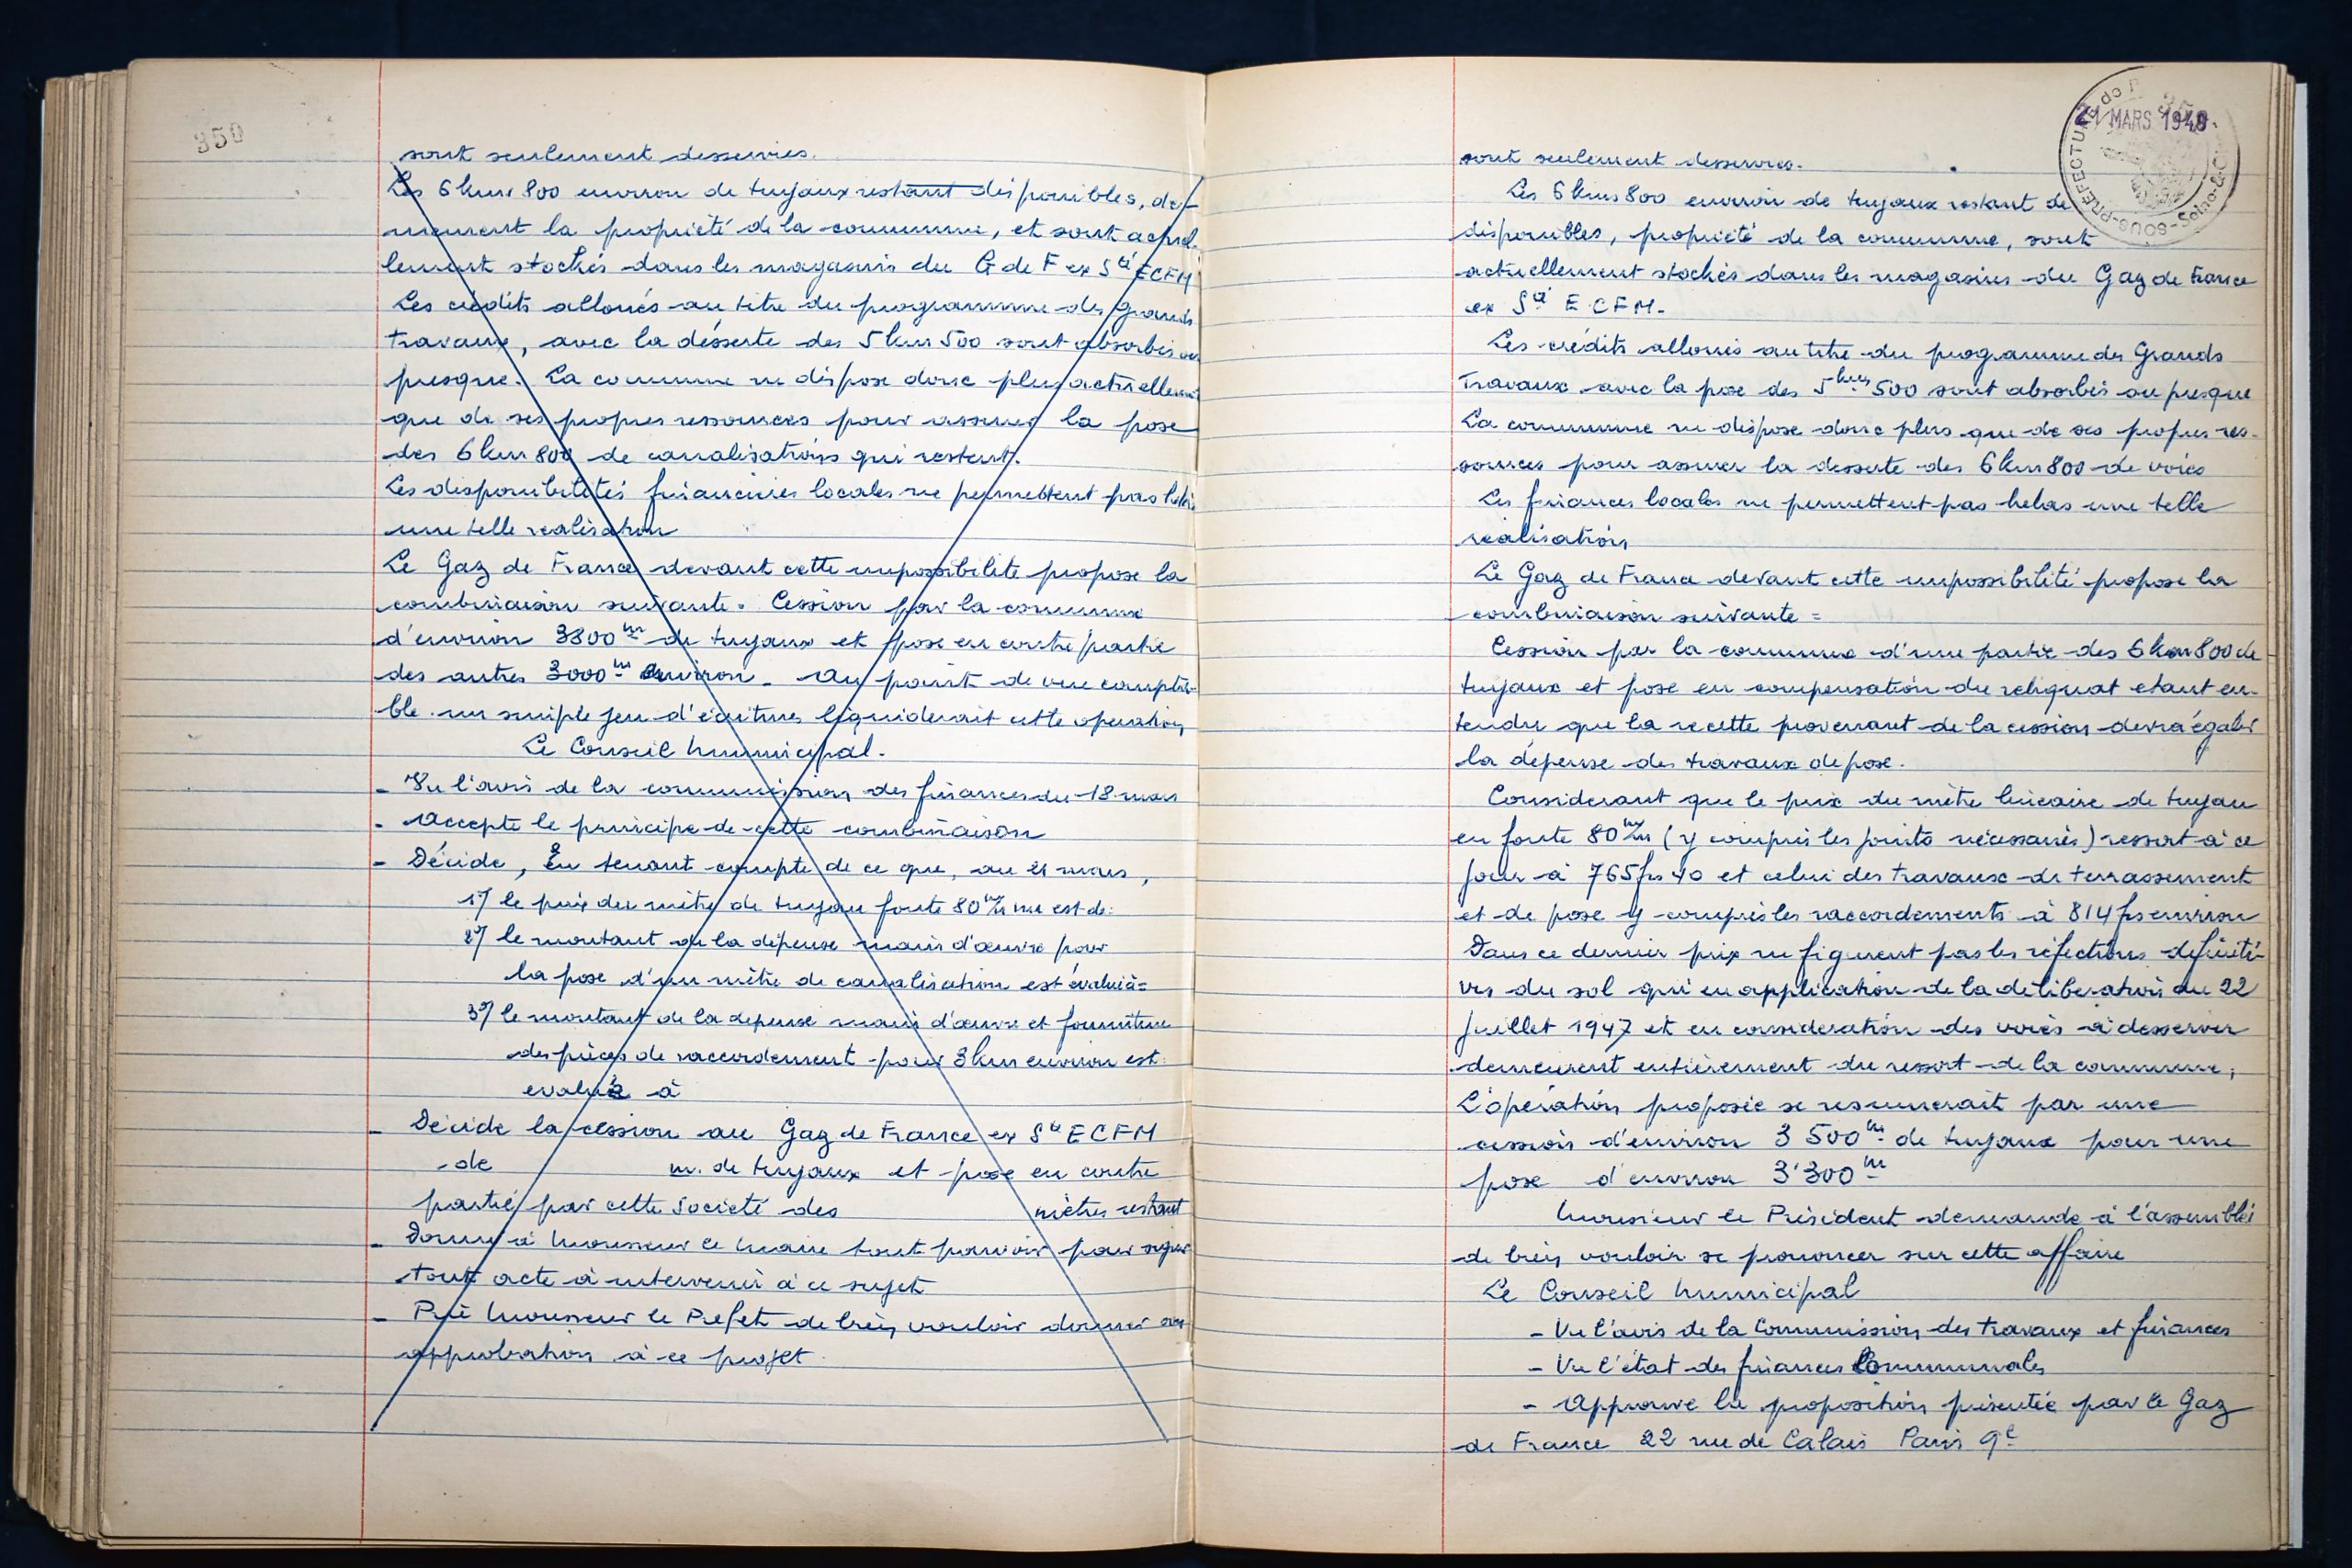 350
sont seulement desservies.
Les 6 km 800 environ de tuyaux restant disponibles, de-
meurent la propriété de la commune, et sont actuel-
lement stockés dans les magasins du G de F ex Sté ECFM
Les crédits alloués au titre du programme des grands
travaux, avec la desserte des 5 km 500 sont absorbés ou
presque. La commune ne dispose donc plus actuellement
que de ses propres ressources pour assurer la pose
des 6 km 800 de canalisations qui restent.
Les disponibilités financières locales ne permettent pas hélas
une telle realisation
Le Gaz de France devant cette impossibilité propose la
combinaison suivante. Cession par la commune
d'environ 3800 m de tuyaux et pose en contre partie
des autres 3000 m environ. Au point de vue compta-
ble un simple jeu d'écritures liquiderait cette operation
Le Conseil Municipal.
- Vu l'avis de la commission des finances du 18 mars
- Accepte le principe de cette combinaison
- Décide, En tenant compte de ce que, au 21 mars,
1°/ le prix du mètre de tuyau fonte 80 m/m est de:
2°/ le montant de la dépense main d'œuvre pour
la pose d'un mètre de canalisation est évalué à =
3°/ le montant de la depense main d'œuvre et fourniture
des pièces de raccordement pour 3 km environ est
evaluée à
- Décide la cession au Gaz de France ex Sté ECFM
de m. de tuyaux et pose en contre
partie par cette Société des mètres restant
- Donne à Monsieur le Maire tout pouvoir pour signer
tout acte à intervenir à ce sujet
- Prie Monsieur le Préfet de bien vouloir donner son
approbation à ce projet.
SOUS-PREFECTURE de P
21 MARS 1948
Seine-&-O
sont seulement desservies.
Les 6 kms 800 environ de tuyaux restant de
disponibles, propriété de la commune, sont
actuellement stockés dans les magasins du Gaz de France
ex Sté E.C.F.M.
Les crédits alloués au titre du programme des Grands
Travaux avec la pose des 5 kms 500 sont absorbés ou presque
La commune ne dispose donc plus que de ses propres res-
sources pour assurer la desserte des 6 km 800 de voies
Les finances locales ne permettent pas helas une telle
réalisation
Le Gaz de France devant cette impossibilité propose la
combinaison suivante =
Cession par la commune d'une partie des 6 km 800 de
tuyaux et pose en compensation du reliquat etant en-
tendu que la recette provenant de la cession devra égaler
la dépense des travaux de pose.
Considerant que le prix du mètre linéaire de tuyau
en fonte 80 m/m (y compris les joints nécessaires) ressort à ce
jour à 765 frs 40 et celui des travaux de terrassement
et de pose y compris les raccordements à 814 frs environ
Dans ce dernier prix ne figurent pas les réfections définiti-
ves du sol qui en application de la délibération du 22
Juillet 1947 et en consideration des voies à desservir
demeurent entièrement du ressort de la commune;
L'opération proposée se resumerait par une
cession d'environ 3 500 m de tuyaux pour une
pose d'environ 3 300 m
Monsieur le Président demande à l'assemblée
de bien vouloir se prononcer sur cette affaire
Le Conseil Municipal
- Vu l'avis de la Commission des travaux et finances
- Vu l'état des finances Communales
- Approuve la proposition présentée par le Gaz
de France 22 rue de Calais Paris 9e